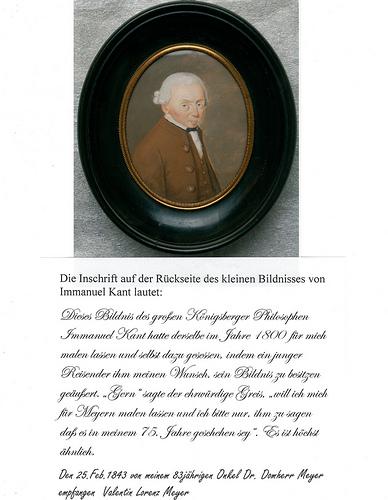 Die Inschrift auf der Rückseite des kleinen Bildnisses von
Immanuel Kant lautet:
Dieses Bildnis des großen Königsberger Philosophen
Immanuel Kant hatte derselbe im Jahre 1800 für mich
malen lassen und selbst dazu gesessen, indem ein junger
Reisender ihm meinen Wunsch, sein Bildnis zu besitzen
geäußert. „Gern" sagte der ehrwürdige Greis, „will ich mich
für Meyern malen lassen und ich bitte nur, ihm zu sagen
daß es in meinem 75. Jahre geschehen sey". Es ist höchst
ähnlich.
Den 25.Feb.1843 von meinem 83jährigen Onkel Dr. Domherr Meyer
empfangen Valentin Lorenz Meyer